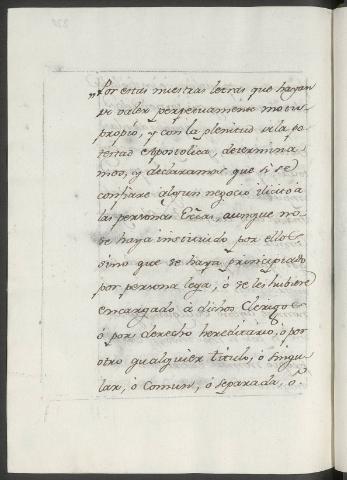 „Por estas nuestras letras que hayan
de valer perpetuamente motu
propio, y con la plenitud de la po-
testad Apostolica, determina
mos, y declaramos que si se
confiare algun negocio ilicito a
las personas Ecc.as, aunque no
se haya instituido por ellos
sino que se haya principiado
por persona lega, ó se les hubiere
encargado à dichos Clerigos
ó por derecho hereditario, ó por
otro qualquier titulo, ó singu-
lar, ó comun, ó separada, ó.